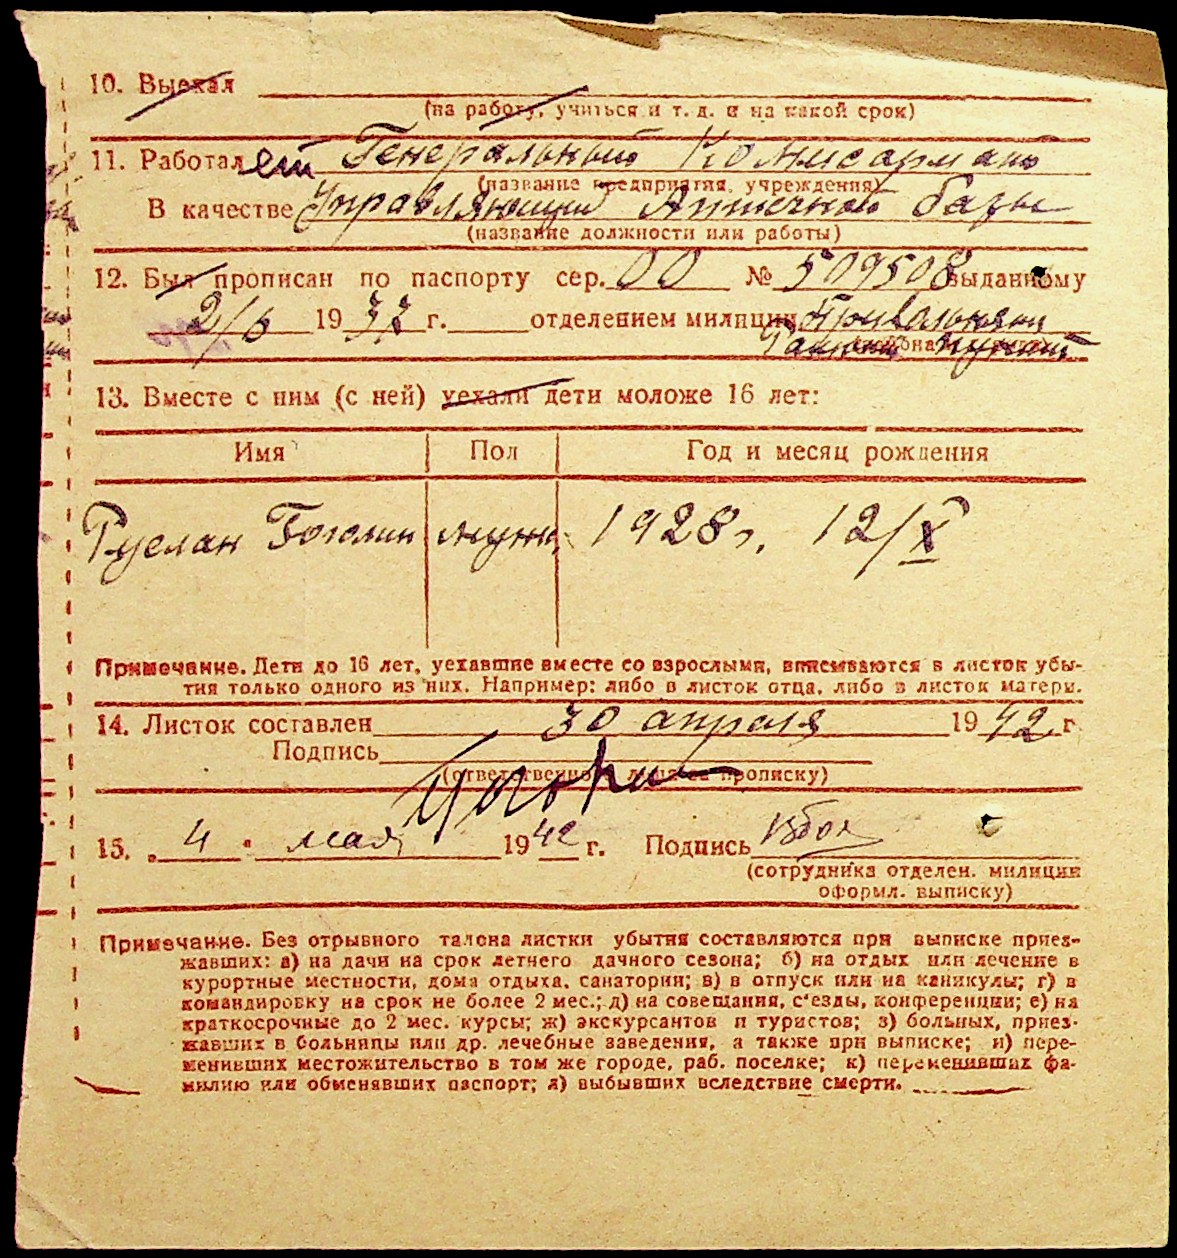 10. Выехал
(на работу, учиться и т. д. и на какой срок)
11. Работал ет Генеральный Комисариат
(название предприятия, учреждения)
В качестве Управляющий Аптечной базы
(название должности или работы)
12. Был прописан по паспорту сер. 00 № 509508 выданному
2/6 1937 г. отделением милиции
13. Вместе с ним (с ней) уехали дети моложе 16 лет:
Имя Пол Год и месяц рождения
Руслан муж. 1928 г. 12/X
Примечание. Дети до 16 лет, уехавшие вместе со взрослыми, вписываются в листок убы-
тия только одного из них. Например: либо в листок отца, либо в листок матери.
14. Листок составлен 30 апреля 1942 г.
Подпись
(ответственного лица за прописку)
15. „ 4 " мая 1942 г. Подпись
(сотрудника отделен. милиции
оформл. выписку)
Примечание. Без отрывного талона листки убытия составляются при выписке приез-
жавших: а) на дачи на срок летнего дачного сезона; б) на отдых или лечение в
курортные местности, дома отдыха, санатории; в) в отпуск или на каникулы; г) в
командировку на срок не более 2 мес.; д) на совещания, с'езды, конференции; е) на
краткосрочные до 2 мес. курсы; ж) экскурсантов и туристов; з) больных, приез-
жавших в больницы или др. лечебные заведения, а также при выписке; и) пере-
менивших местожительство в том же городе, раб. поселке; к) переменивших фа-
милию или обменявших паспорт; л) выбывших вследствие смерти.